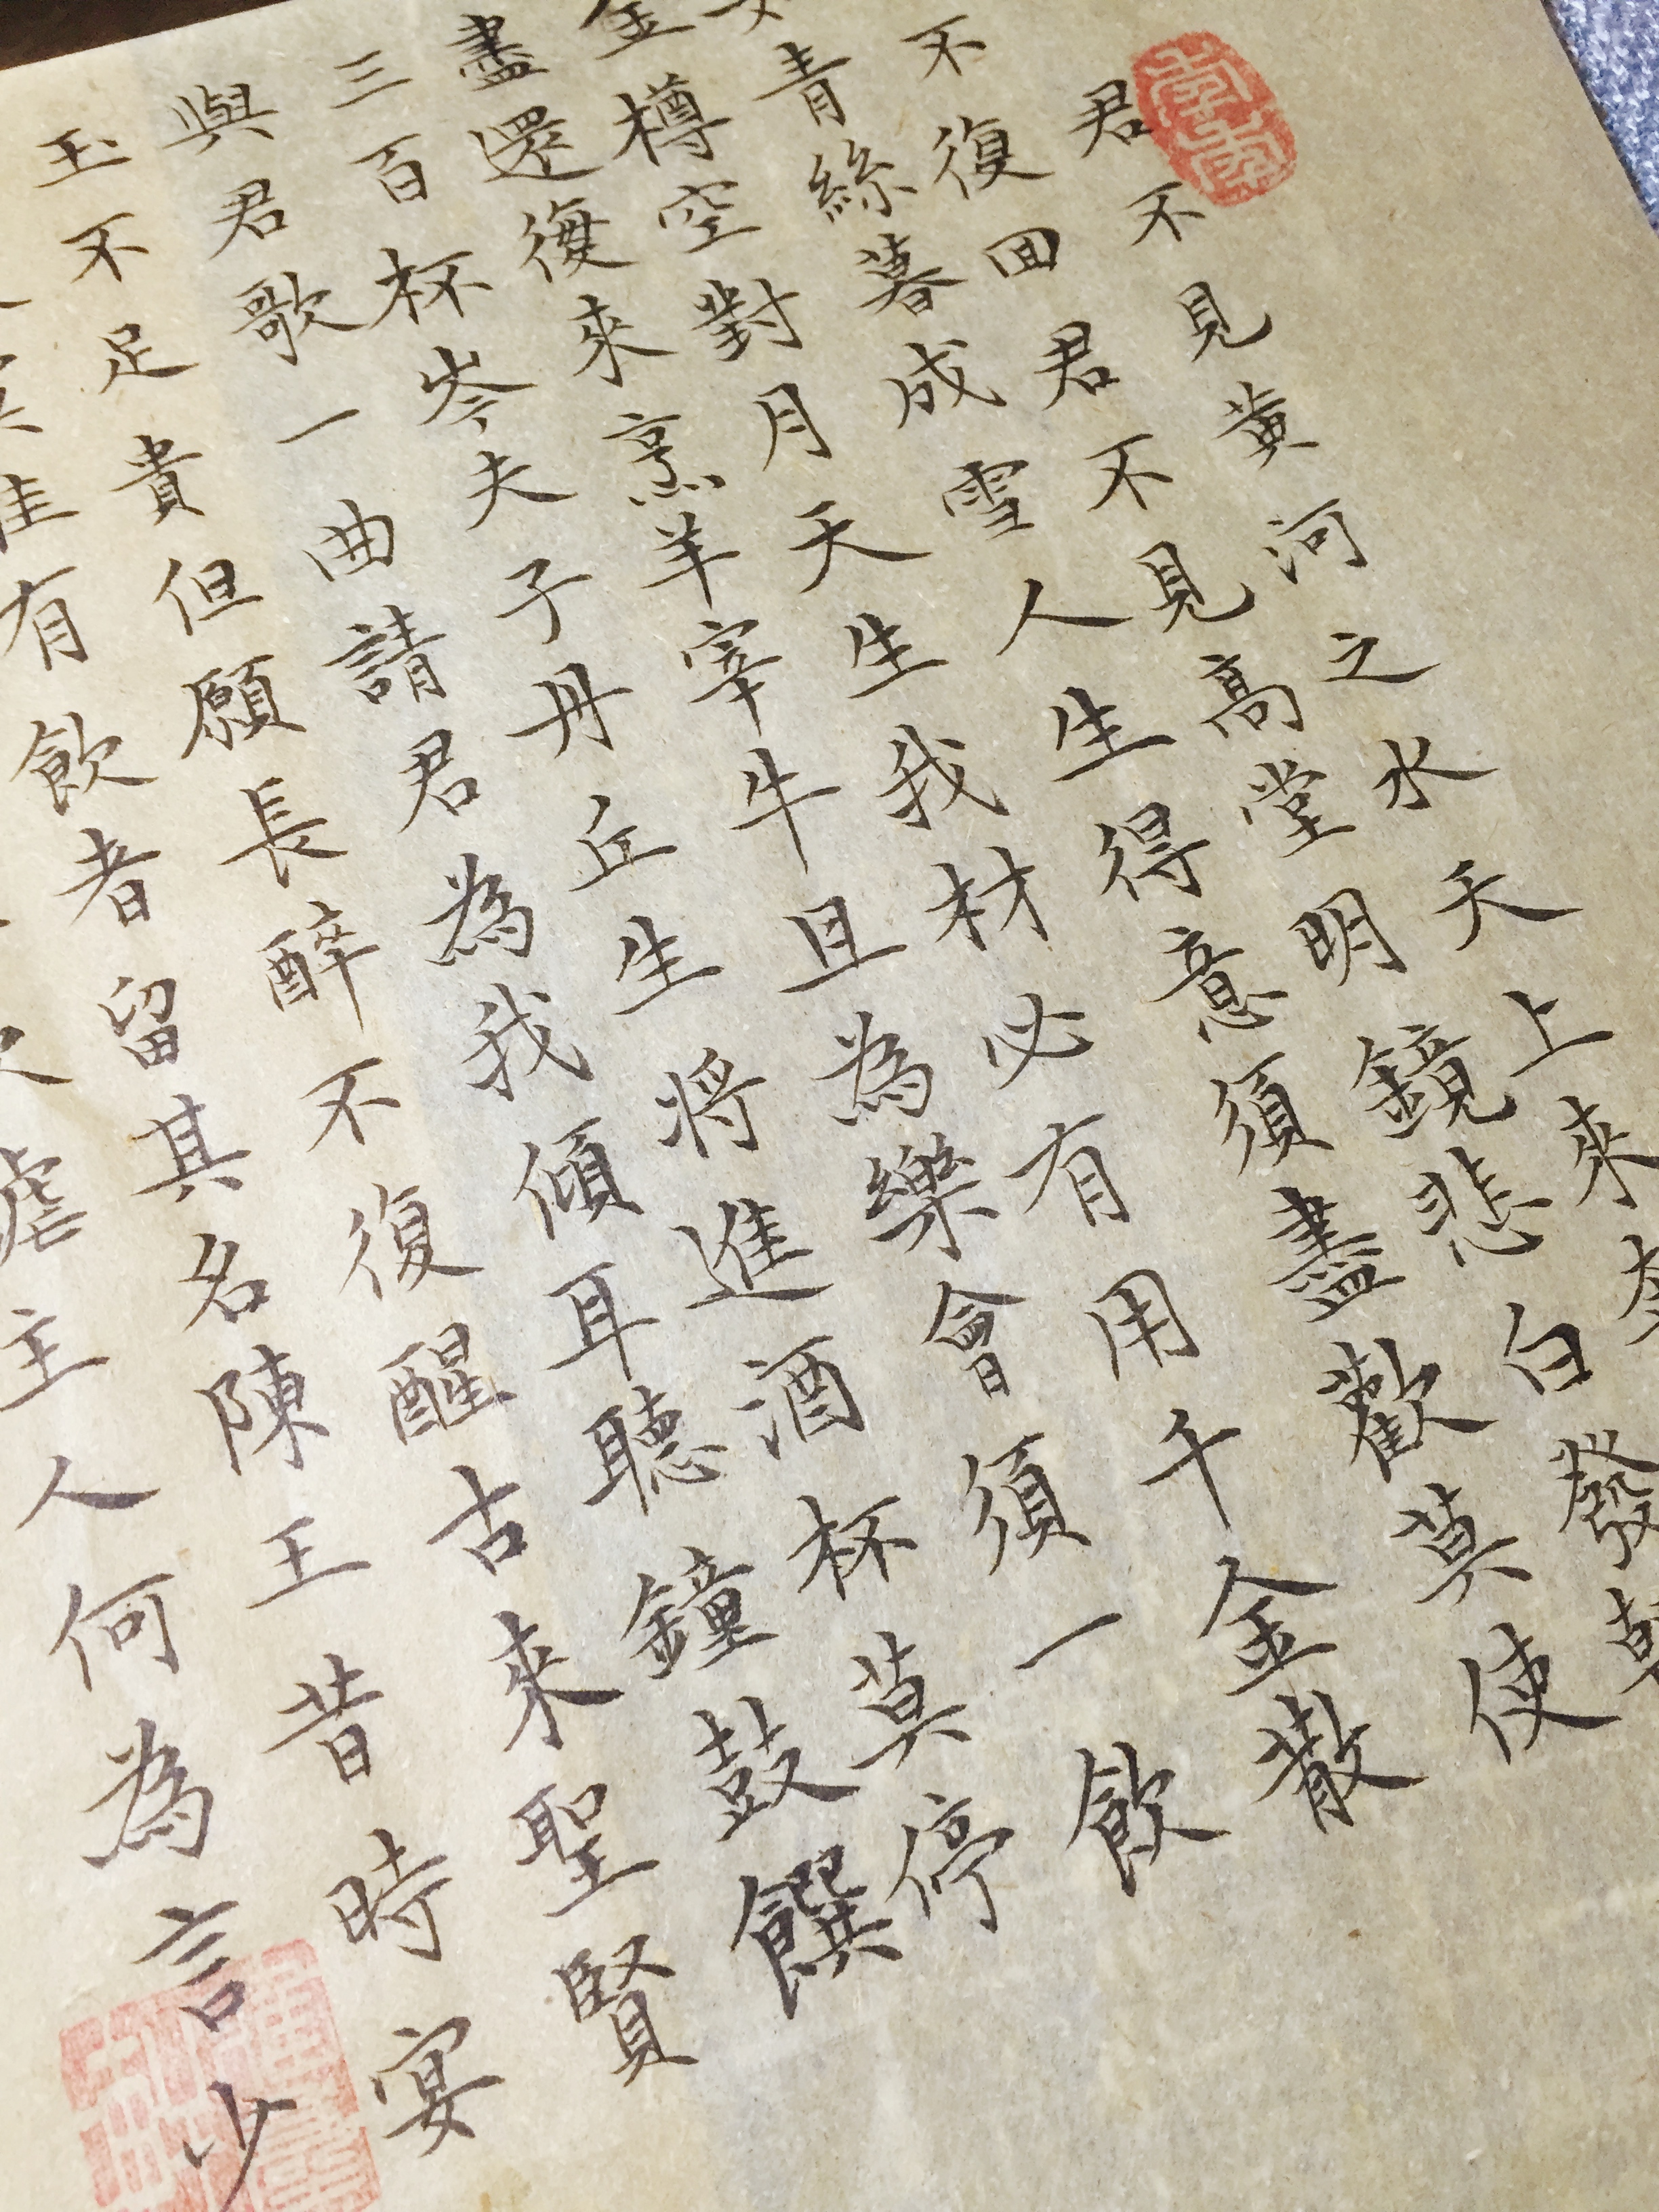 君不見黃河之水天上來
不復回君不見高堂明鏡悲白發
青絲暮成雪人生得意須盡歡莫使
金樽空對月天生我材必有用千金散
盡還復來烹羊宰牛且為樂會須一飲
三百杯岑夫子丹丘生将進酒杯莫停
與君歌一曲請君為我傾耳聽鐘鼓饌
玉不足貴但願長醉不復醒古來聖賢
有飲者留其名陳王昔時宴
主人何為言少